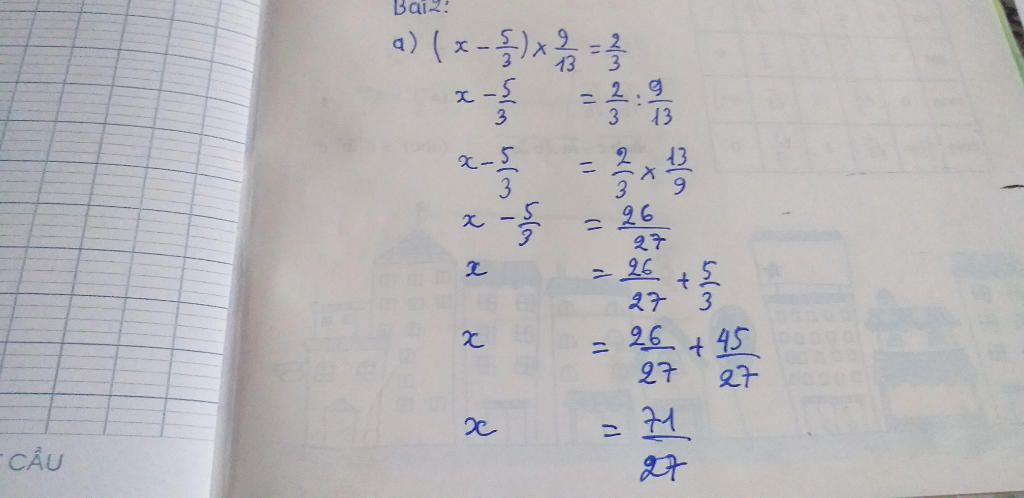 Bài 2:
a) (x - 5/3) × 9/13 = 2/3
x - 5/3 = 2/3 : 9/13
x - 5/3 = 2/3 × 13/9
x - 5/3 = 26/27
x = 26/27 + 5/3
x = 26/27 + 45/27
x = 71/27
CẦU